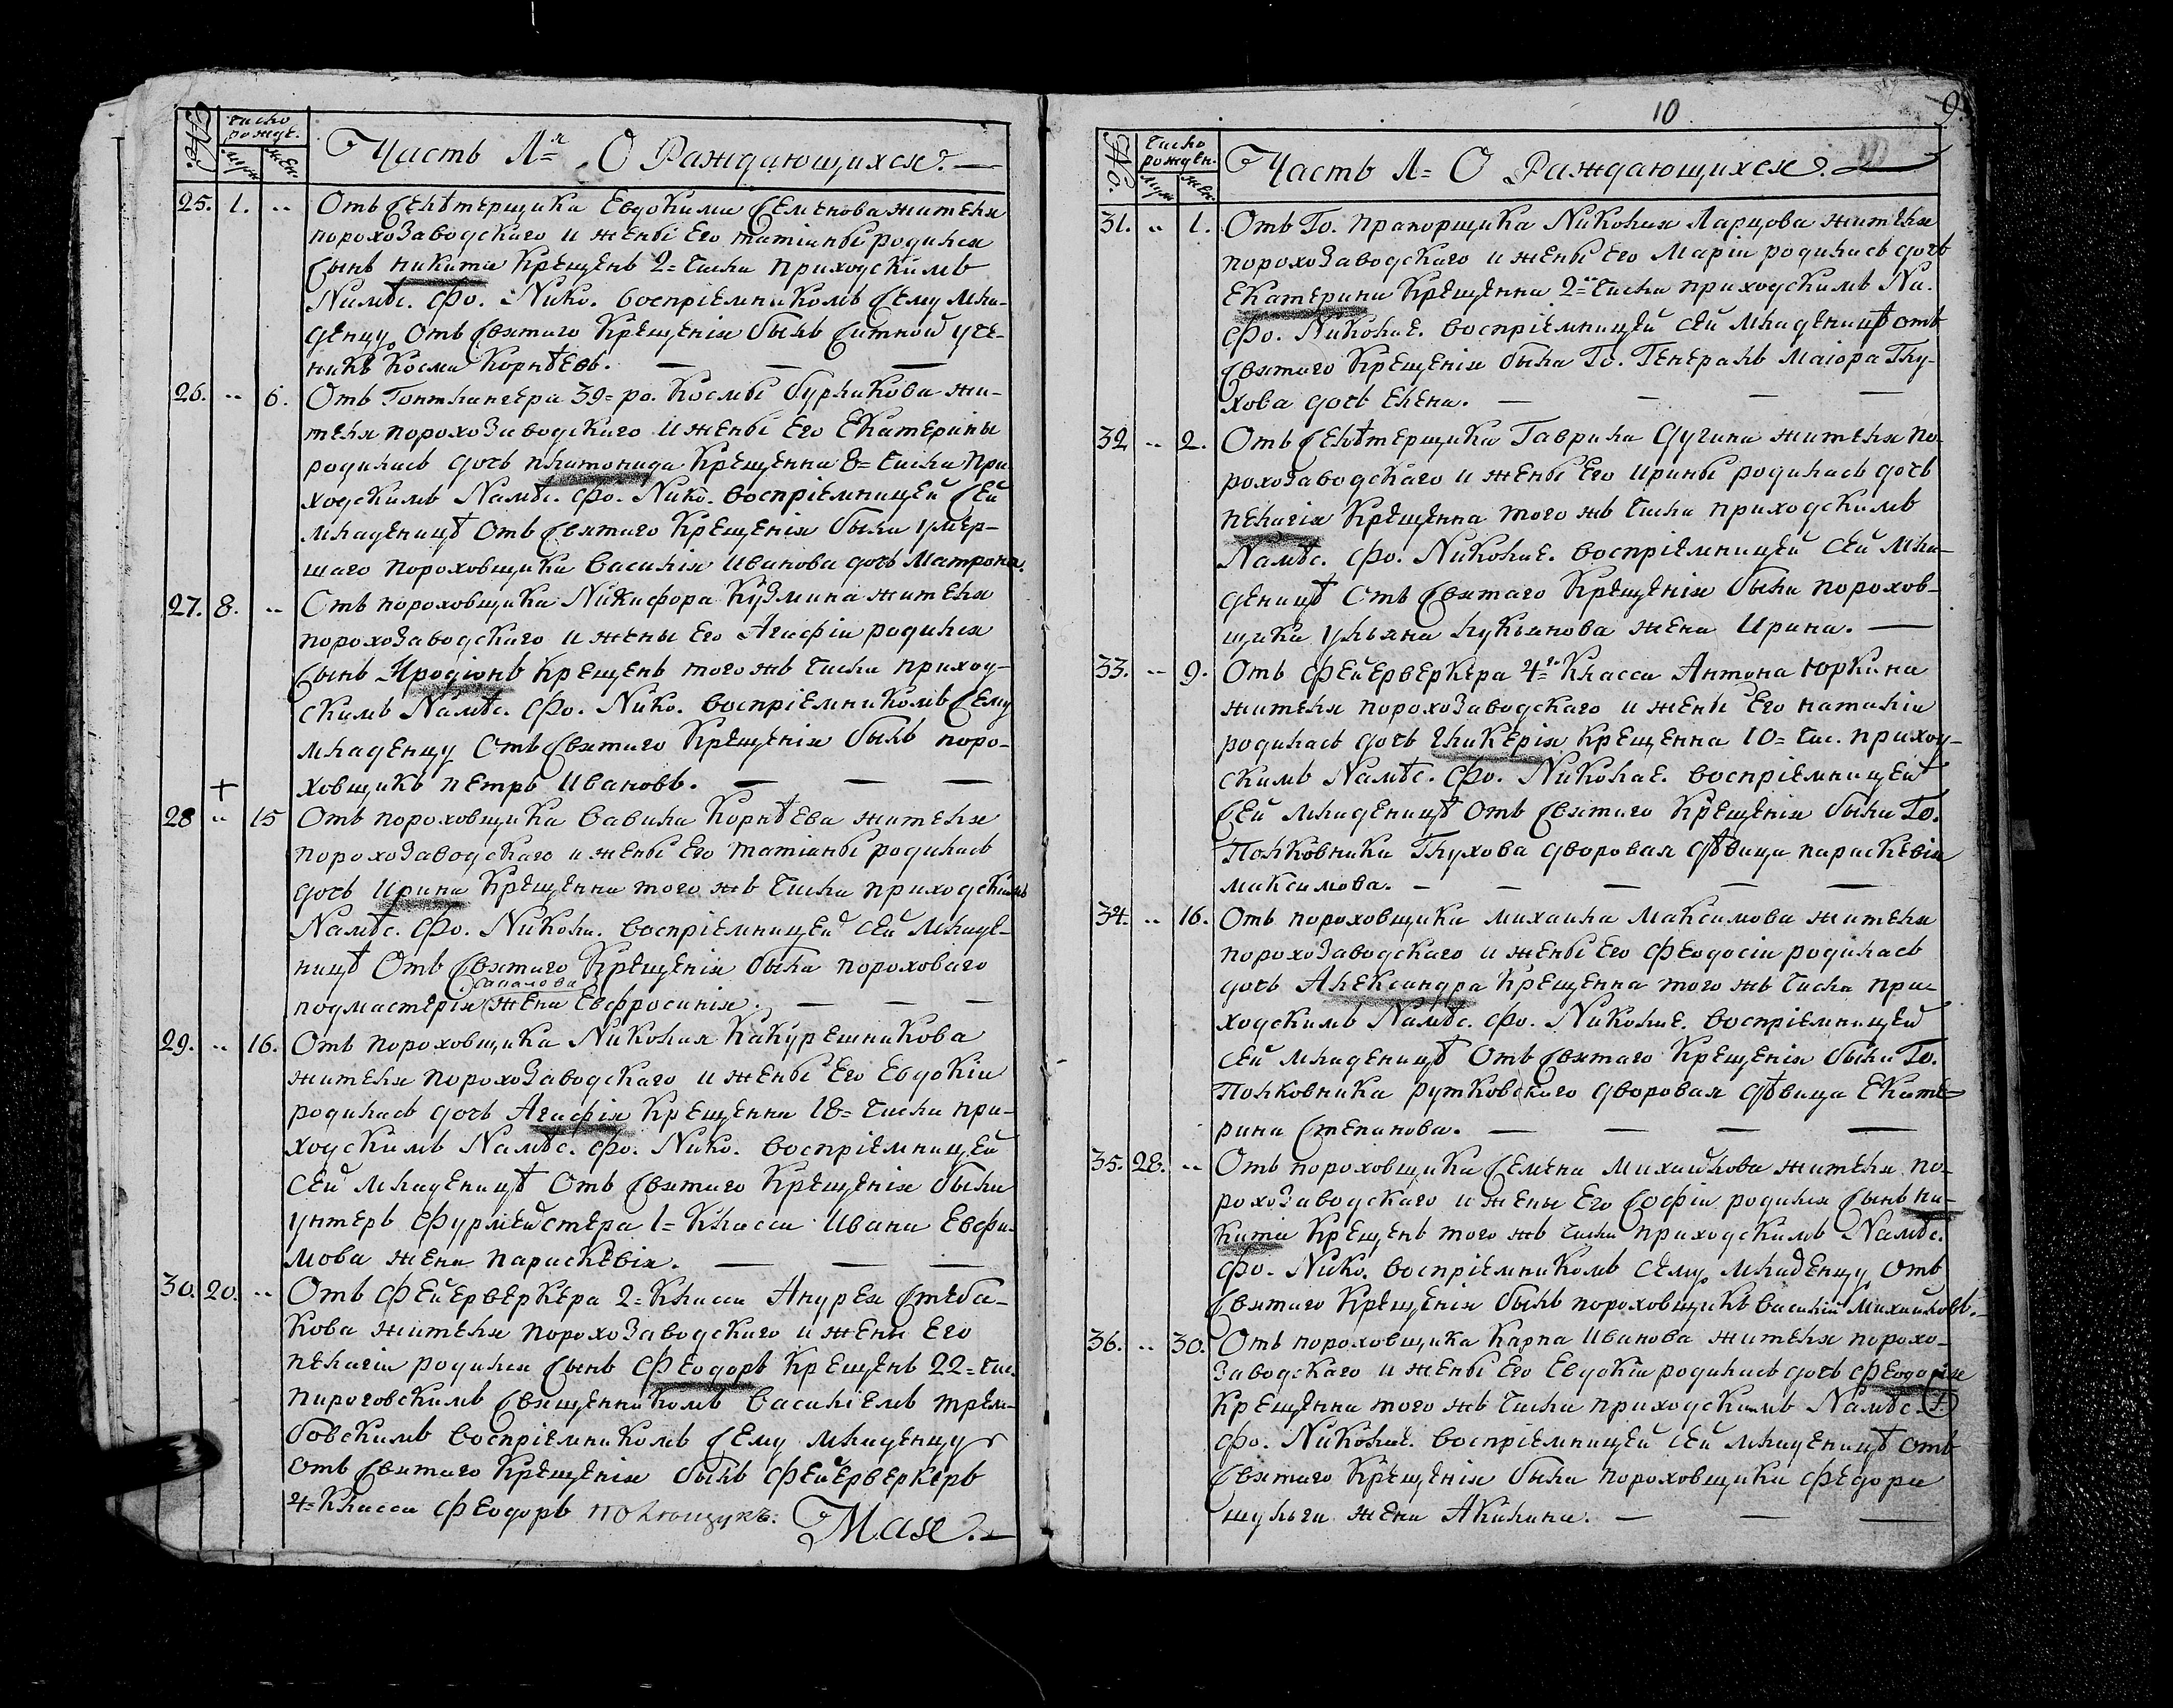 №.
Число рожде.
муж. жен.
Часть 1я О Раждающихся.
25. 1. „ Отъ Селѣтерщика Евдокима Семенова жителя
порохозаводскаго и жены Его татіаны родился
Сынъ никита Крещенъ 2= числа приходскимъ
Намѣс. Фо. Нико. Воспріемникомъ Сему мла-
денцу Отъ Святаго Крещенія былъ Ситной уче-
никъ Косма Корнѣевъ.
26. „ 6. Отъ Гонтлангера 39= ро. Космы бурлакова жи-
теля порохозаводскаго и жены Его Екатерины
родилась дочь платонида Крещенна 8= числа при
ходскимъ Намѣс. Фо. Нико. Воспріемницей Сей
младеницѣ Отъ Святаго Крещенія была умер-
шаго пороховщика Василія Иванова дочь Матрона.
27. 8. „ Отъ пороховщика Никифора Кузмина жителя
порохозаводскаго и жены Его Агафіи родился
Сынъ Иродіонъ Крещенъ того жъ числа приход-
скимъ Намѣс. Фо. Нико. Воспріемникомъ Сему
младенцу Отъ Святаго Крещенія былъ поро-
+ ховщикъ петръ Ивановъ.
28 „ 15 Отъ пороховщика Вавила Корнѣева жителя
порохозаводскаго и жены Его татіаны родилась
дочь Ирина Крещенна того жъ числа приходскимъ
Намѣс. Фо. Никола. Воспріемницей Сей младе-
ницѣ Отъ Святаго Крещенія была пороховаго
подмастерія жена Евфросинія.
29. „ 16. Отъ пороховщика Николая Какурешникова
жителя порохозаводскаго и жены Его Евдокіи
родилась дочь Агафія Крещенна 18= числа при-
ходскимъ Намѣс. Фо. Нико. Воспріемницей
Сей младеницѣ Отъ Святаго Крещенія была
унтеръ Фурмейстера 1= Класса Ивана Евфи-
мова жена параскевія.
30. 20. „ Отъ Фейерверкера 2= Класса Андрея Стеба-
кова жителя порохозаводскаго и жены Его
пелагіи родился Сынъ Феодоръ Крещенъ 22= чис.
пироговскимъ Священникомъ Василіемъ трем-
бовскимъ Воспріемникомъ Сему младенцу
отъ Святаго Крещенія былъ Фейерверкеръ
4= Класса Феодоръ полющукъ.
Мая.
10
9.
№.
Число рожден.
муж. жен.
Часть 1= О Раждающихся.
31. „ 1. Отъ Го. прапорщика Николая Ларцова жителя
порохозаводскаго и жены Его Маріи родилась дочь
Екатерина Крещенна 2= числа приходскимъ На.
Фо. Николае. Воспріемницей Сей младеницѣ отъ
Святаго Крещенія была Го. Генералъ Маіора Глу-
хова дочь Елена.
32 „ 2. Отъ Селѣтерщика Гаврила Дугина жителя по-
рохозаводскаго и жены Его Ирины родилась дочь
пелагія Крещенна того жъ числа приходскимъ
Намѣс. Фо. Николае. Воспріемницей Сей мла-
деницѣ Отъ Святаго Крещенія была порохов-
щика Ульяна лукьянова жена Ирина.
33. „ 9. Отъ Фейерверкера 4го Класса Антона Юркина
жителя порохозаводскаго и жены Его наталіи
родилась дочь гликерія Крещенна 10= чис. приход-
скимъ Намѣс. Фо. Николае. Воспріемницей
Сей младеницѣ Отъ Святаго Крещенія была Го.
Полковника Глухова дворовая дѣвица параскевія
максимова.
34. „ 16. Отъ пороховщика михаила Максимова жителя
порохозаводскаго и жены Его Феодосіи родилась
дочь Александра Крещенна того жъ числа при-
ходскимъ Намѣс. Фо. Николае. Воспріемницей
Сей младеницѣ Отъ Святаго Крещенія была Го.
Полковника рутковскаго дворовая дѣвица Екате-
рина Степанова.
35. 28. „ Отъ пороховщика Семена Михайлова жителя по-
рохозаводскаго и жены Его Софіи родился Сынъ ни-
кита Крещенъ того жъ числа приходскимъ Намѣс.
Фо. Нико. Воспріемникомъ Сему младенцу Отъ
Святаго Крещенія былъ пороховщикъ Василій Михайловъ.
36. „ 30. Отъ пороховщика Карпа Иванова жителя порохо-
заводскаго и жены Его Евдокіи родилась дочь Феодосія
Крещенна того жъ числа приходскимъ Намѣс.
Фо. Николае. Воспріемницей Сей младеницѣ Отъ
Святаго Крещенія была пороховщика Федора
шульги жена Акилина.